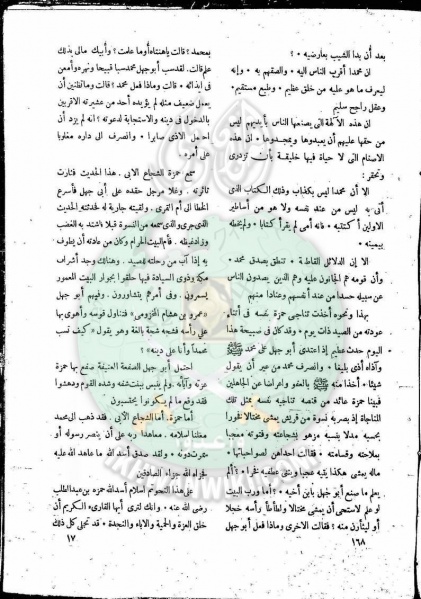 بعد أن بدا الشيب بعارضيه ؟
ان محمدا أقرب الناس اليه • والصقهم به • وإنه
ليعرف ما هو عليه من خلق عظيم • وطبع مستقيم •
وعقل راجح سليم
ان هذه الآلهة التى يصنعها الناس بأيديهم ليس
من حقها عليهم أن يعبدوها ويمجدوها • ان هذه
الاصنام التى لا حياة فيها خليقة بأن تزدرى
وتحقر :
الا أن محمدا ليس بكذاب وذلك الكتاب الذى
أتى به ليس من عند نفسه ولا هو من أساطير
الاولين اكتتبه • فانه أمى لم يقرأ كتابا • ولم يخطه
بيمينه •
إن الدلائل القاطعة • تنطق بصدق محمد •
وأن قومه هم الجانون عليه وهم الذين يصدون الناس
عن سبيله حسدا من عند أنفسهم وعنادا منهم
بهذا ونحوه أخذت تناجى حمزة نفسه فى أثناء
عودته من الصيد ذات يوم • وقد كان فى صبيحة هذا
اليوم حدث عظيم إذ اعتدى أبو جهل على محمد ﷺ
وآذاه أذى بليغا • وانصرف محمد من غير أن يقول
شيئا • أخذا منه ﷺ بالعفو واعراضا عن الجاهلين
فبينا حمزة عائد من قنصه تناجيه نفسه بمثل تلك
المناجاة إذ بصر به نسوة من قريش يمشى مختالا فخورا
بحسبه مدلا بنفسه مزهو بشجاعته وفتوته معجبا
بملاحته وقسامته • فقالت احداهن لصواحبها •
ماله يمشى هكذا يتيه عجبا ويثنى عطفيه فخرا • ألم
يعلم ما صنع أبو جهل بابن أخيه ؟ أما ورب البيت
لو علم لاستحى أن يمشى مختالا ولطأطأ رأسه خجلا
أو ليثأرن منه ؟ فقالت الاخرى وماذا فعل أبو جهل
١٦٨
بمحمد؟ قالت ياهنتاه أوما علمت ؟ وأبيك مالى بذلك
علم قالت • لقد سب أبو جهل محمدا سبا قبيحا ونهره وأمعن
فى ايذائه • قالت وماذا فعل محمد ؟ قالت وما تظنين أن
يعمل ضعيف مثله لم يؤيده أحد من عشيرته الاقربين
بالدخول فى دينه والاستجابة لدعوته ؟ انه لم يزد أن
احتمل الأذى صابرا • وانصرف الى داره مغلوبا
على أمره •
سمع حمزة الشجاع الابى • هذا الحديث فثارت
ثائرته • وغلا مرجل حقده على أبى جهل فأسرع
الخطا الى أم القرى • ولقيته جارية له فحدثته الحديث
الذى جرى والذى سمعه من النسوة قبلا فاشتد به الغضب
وزاد غيظه • فأم البيت الحرام وكان من عادته أن يطوف
به إذا آب من رحلته للصيد • وهناك وجد أشراف
مكة وذوى السيادة فيها حلقوا بجوار البيت المعمور
يسمرون • وفى أمرهم يتشاورون • وفيهم أبو جهل
«عمرو بن هشام المخزومى» فتناول قوسه وأهوى بها
على رأسه فشجه شجة بالغة وهو يقول «كيف تسب
محمدا وأنا على دينه » ؟
احتمل أبو جهل الصفعة العنيفة صفع بها حمزة
عزته وآباءه • ولم ينبس ببنت شفه وشده القوم ودهشوا
فقد وقع ما لم يكونوا يحتسبون
أما حمزة • أما الشجاع الابى • فقد ذهب الى محمد
معلنا اسلامه • معاهدا ربه على أن ينصر رسوله أو
يموت دونه • ولقد صدق أسد الله ما عاهد الله عليه
فجزاه الله جزاء الصادقين
على هذا النحو تم اسلام أسد الله حمزة بن عبدالمطلب
رضى الله عنه • وانك لترى أيها القارىء الكريم أن
خلق العزة والحمية والاباء والنجدة • قد تجلى كل ذلك
١٧